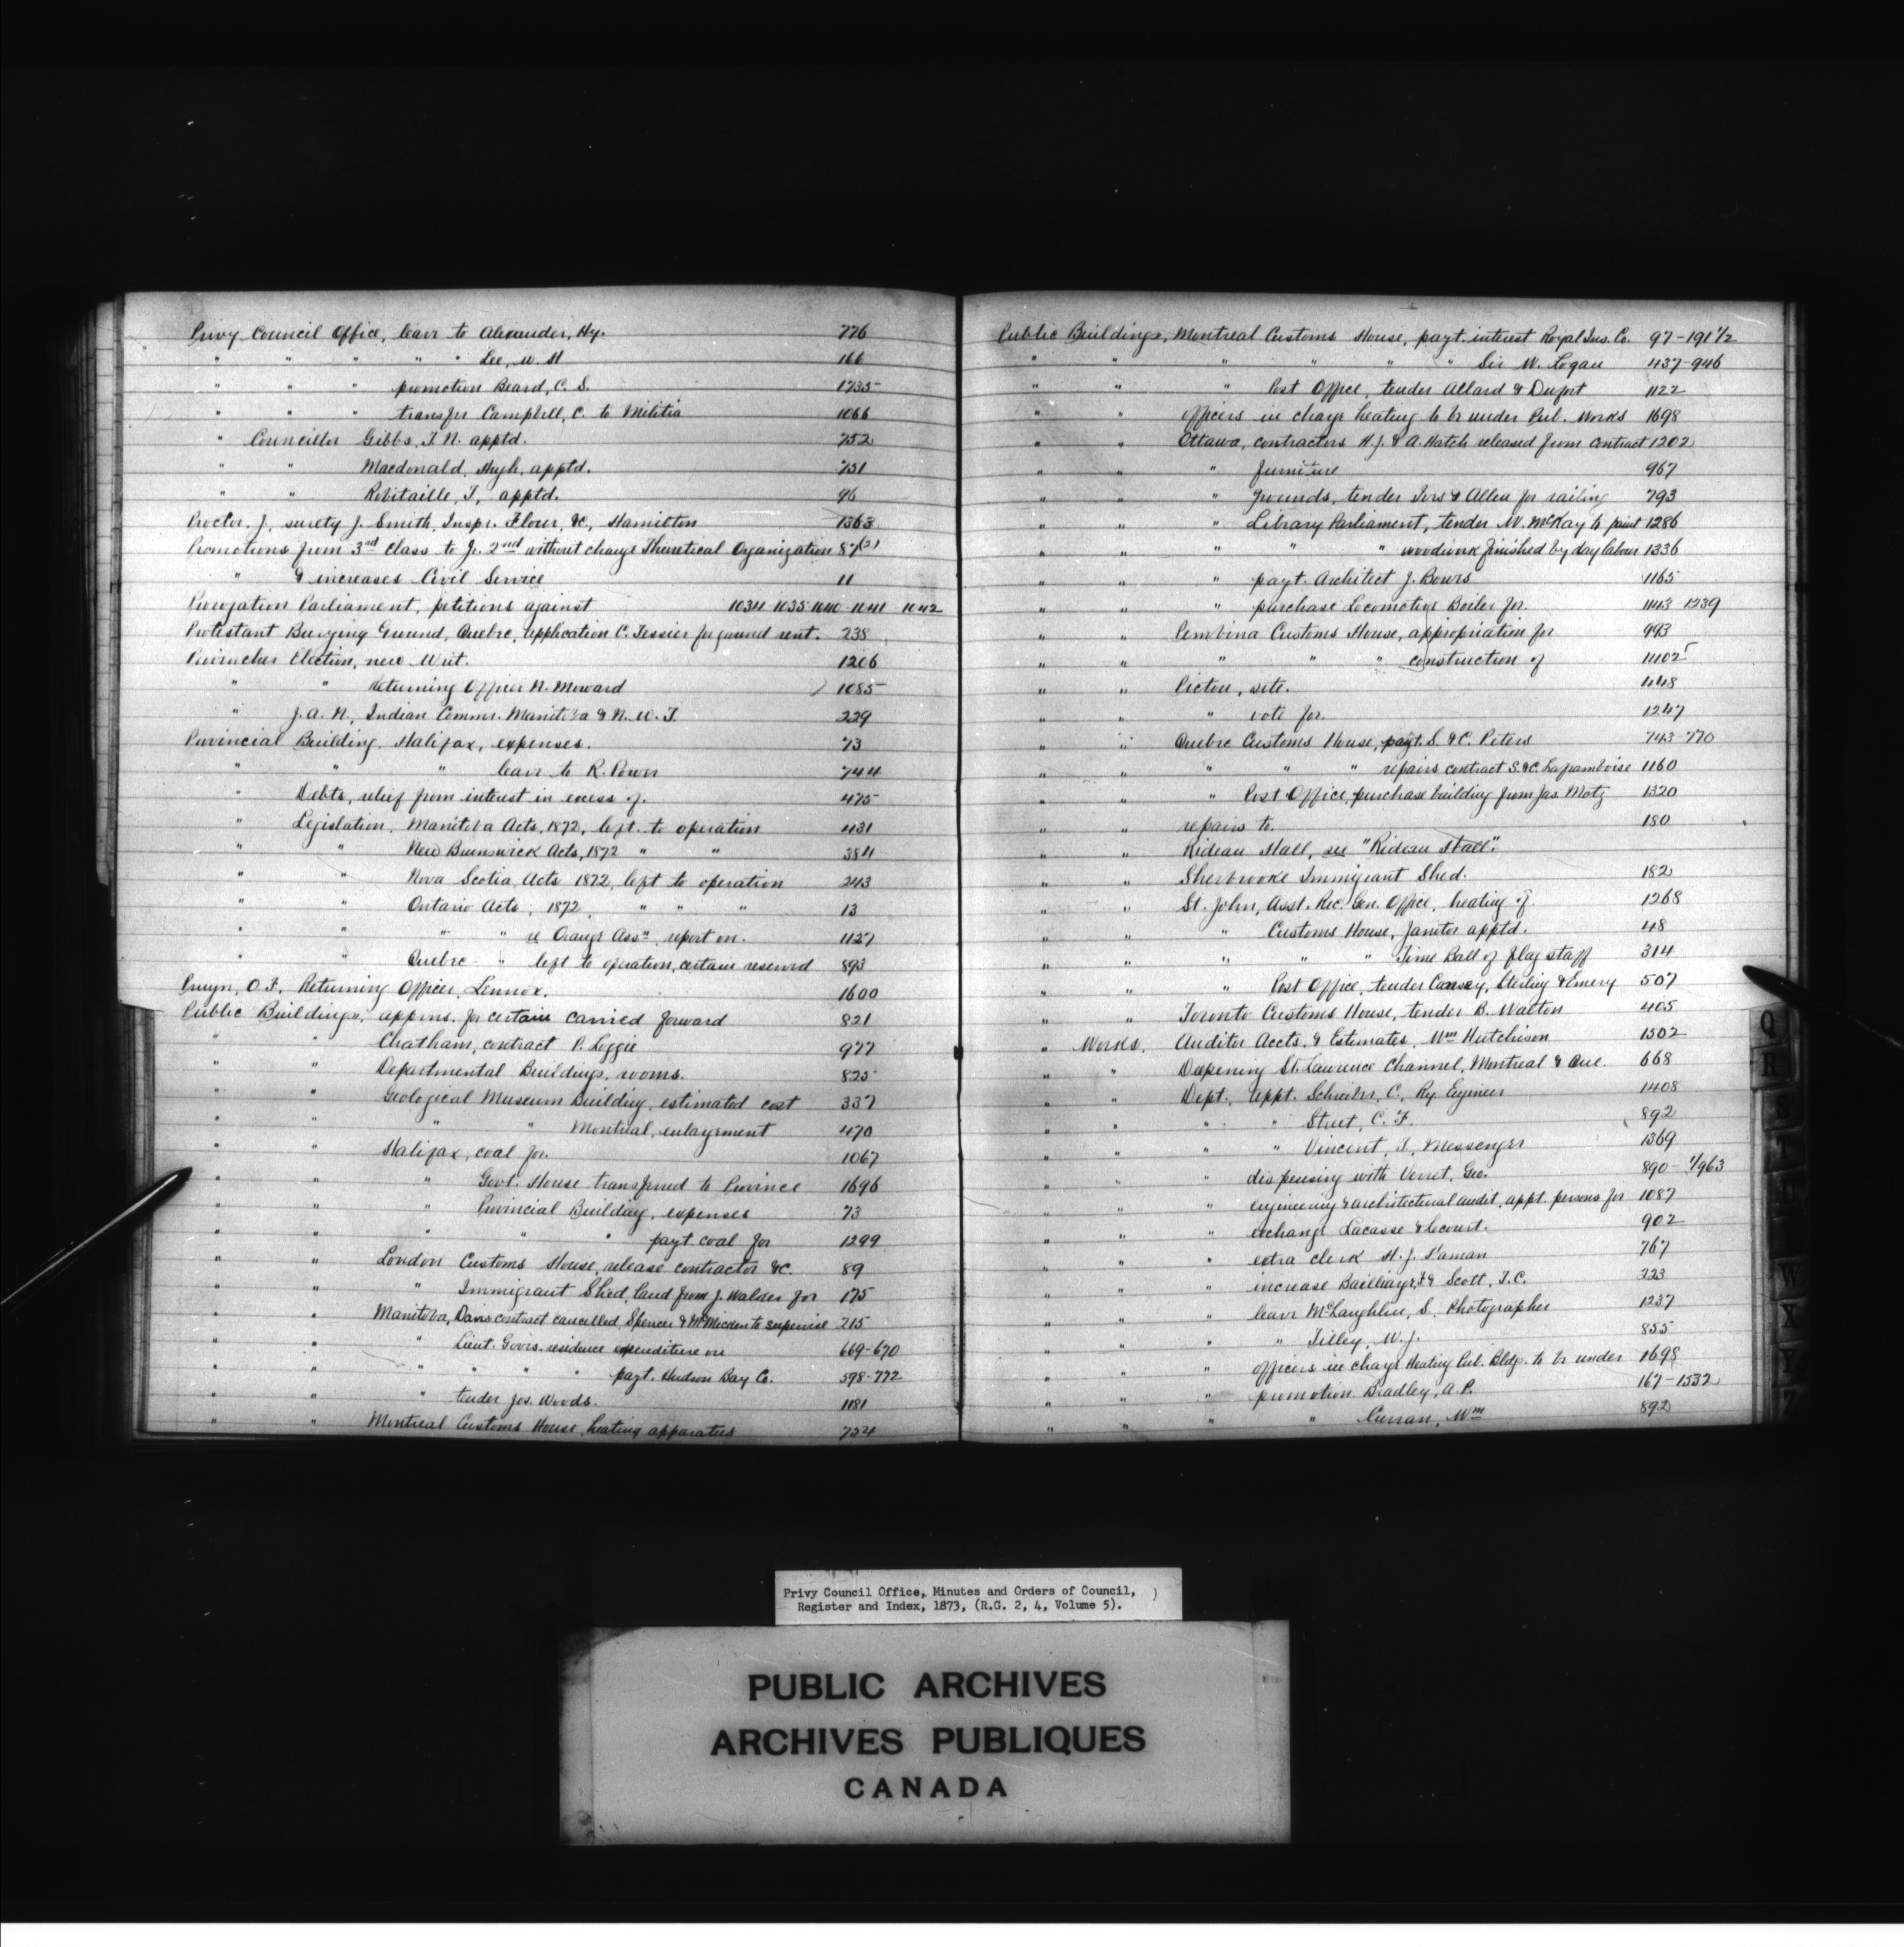 Privy Council Office, leave to Alexander, Hy. 776
" " " " " Lee, W. H 166
" " " promotion Beard, C. S. 1735
" " " transfer Campbell, C. to Militia 1066
" Councillor Gibbs, T. N. apptd. 752
" " Macdonald, Hugh, apptd. 751
" " Robitaille, T, apptd. 96
Proctor, J, surety J. Smith, Inspr. Flour, &c, Hamilton 1363
Promotions from 3rd Class to Jr. 2nd without change Theoretical Organization 87(2)
" & increases Civil Service 11
Prorogation Parliament, petitions against 1034 1035 1040-1041 1042
Protestant Burying Ground, Quebec, application C. Tessier for ground rent. 238
Provencher Election, new Writ. 1206
" " Returning Officer N. Moward 1085
" J. A. N, Indian Commr. Manitoba & N. W. T. 229
Provincial Building, Halifax, expenses. 73
" " " leave to R. Power 744
" Debts, relief from interest in excess of. 475
" Legislation, Manitoba Acts, 1872, left to operation 431
" " New Brunswick Acts, 1872 " " 384
" " Nova Scotia Acts 1872, left to operation 243
" " Ontario Acts, 1872, " " " 13
" " " " re Orange Assn, report on. 1127
" " Quebec " left to operation, certain reserved 893
Pruyn, O. F. Returning Officer, Lennox. 1600
Public Buildings, apprns. for certain carried forward 821
" " Chatham, contract P. Loggie 977
" " Departmental Buildings, rooms. 825
" " Geological Museum Building, estimated cost 337
" " " " Montreal, enlargment 470
" " Halifax, coal for. 1067
" " " Govt. House transferred to Province 1696
" " " Provincial Building, expenses 73
" " " " " payt. coal for 1299
" " London Customs House, release contractor &c. 89
" " " Immigrant Shed, land from J. Walker for 175
" " Manitoba, Davis contract cancelled, Spencer & McMicken to supervise 215
" " " Lieut. Govrs. residence expenditure on 669-670
" " " " " payt. Hudson Bay Co. 598-772
" " " tender Jos. Woods. 1181
" " Montreal Customs House, heating apparatus 754
Public Buildings, Montreal Customs House, payt. interest Royal Ins. Co. 97-191 1/2
" " " " " " Sir W. Logan 437-946
" " " Post Office, tender Allard & Dufort 1122
" " officers in charge heating to be under Pub. Works 1698
" " Ottawa, contractors H. J. & A. Hatch released from contract 1202
" " " furniture 967
" " " grounds, tender Ives & Allen for railing 793
" " " Library Parliament, tender W. McKay to paint 1286
" " " " " woodwork finished by day labour 1336
" " " payt. Architect J. Bowes 1165
" " " purchase Locomotive Boiler for. 1143-1239
" " Pembina Customs House, appropriation for 993
" " " " " construction of 1102
" " Pictou, site. 448
" " " vote for. 1247
" " Quebec Customs House, payt. S. & C. Peters 743-770
" " " " " repairs contract S. & C. 1160
" " " Post Office, purchase building from Jas. Motz 1320
" " repairs to. 180
" " Rideau Hall, see "Rideau Hall".
" " Sherbrooke Immigrant Shed. 182
" " St. John, Asst. Rec. Gen. Office, heating of. 1268
" " " Customs House, Janitor apptd. 48
" " " " " Time Ball of flag staff 314
" " " Post Office, tender Causey, Sterling & Emery 507
" " Toronto Customs House, tender B. Walton 405
" Works, Auditor Accts. & Estimates, Wm Hutchison 1502
" " Deepening St. Lawrence Channel, Montreal & Que. 668
" " Dept., appt. Schreiber, C, Ry Engineer 1408
" " " " Street, C. F. 892
" " " " Vincent, T, Messenger 1369
" " " dispensing with Verret, Geo. 890-1/963
" " " engineering & architectural audit, appt. persons for 1087
" " " exchange Lacasse & Lecourt. 902
" " " extra clerk H. J. 767
" " " increase Baillairge, F & Scott, T. C. 223
" " " leave McLaughlin, S. Photographer 1237
" " " " Tilley, W. J. 855
" " " officers in charge Heating Pub. Bldgs. to be under 1698
" " " promotion Bradley, A. P. 167-1532
" " " " Curran, Wm 892
Q
R
S
T
W
X
Y
Z
Privy Council Office, Minutes and Orders of Council, )
Register and Index, 1873, (R.G. 2, 4, Volume 5).
PUBLIC ARCHIVES
ARCHIVES PUBLIQUES
CANADA